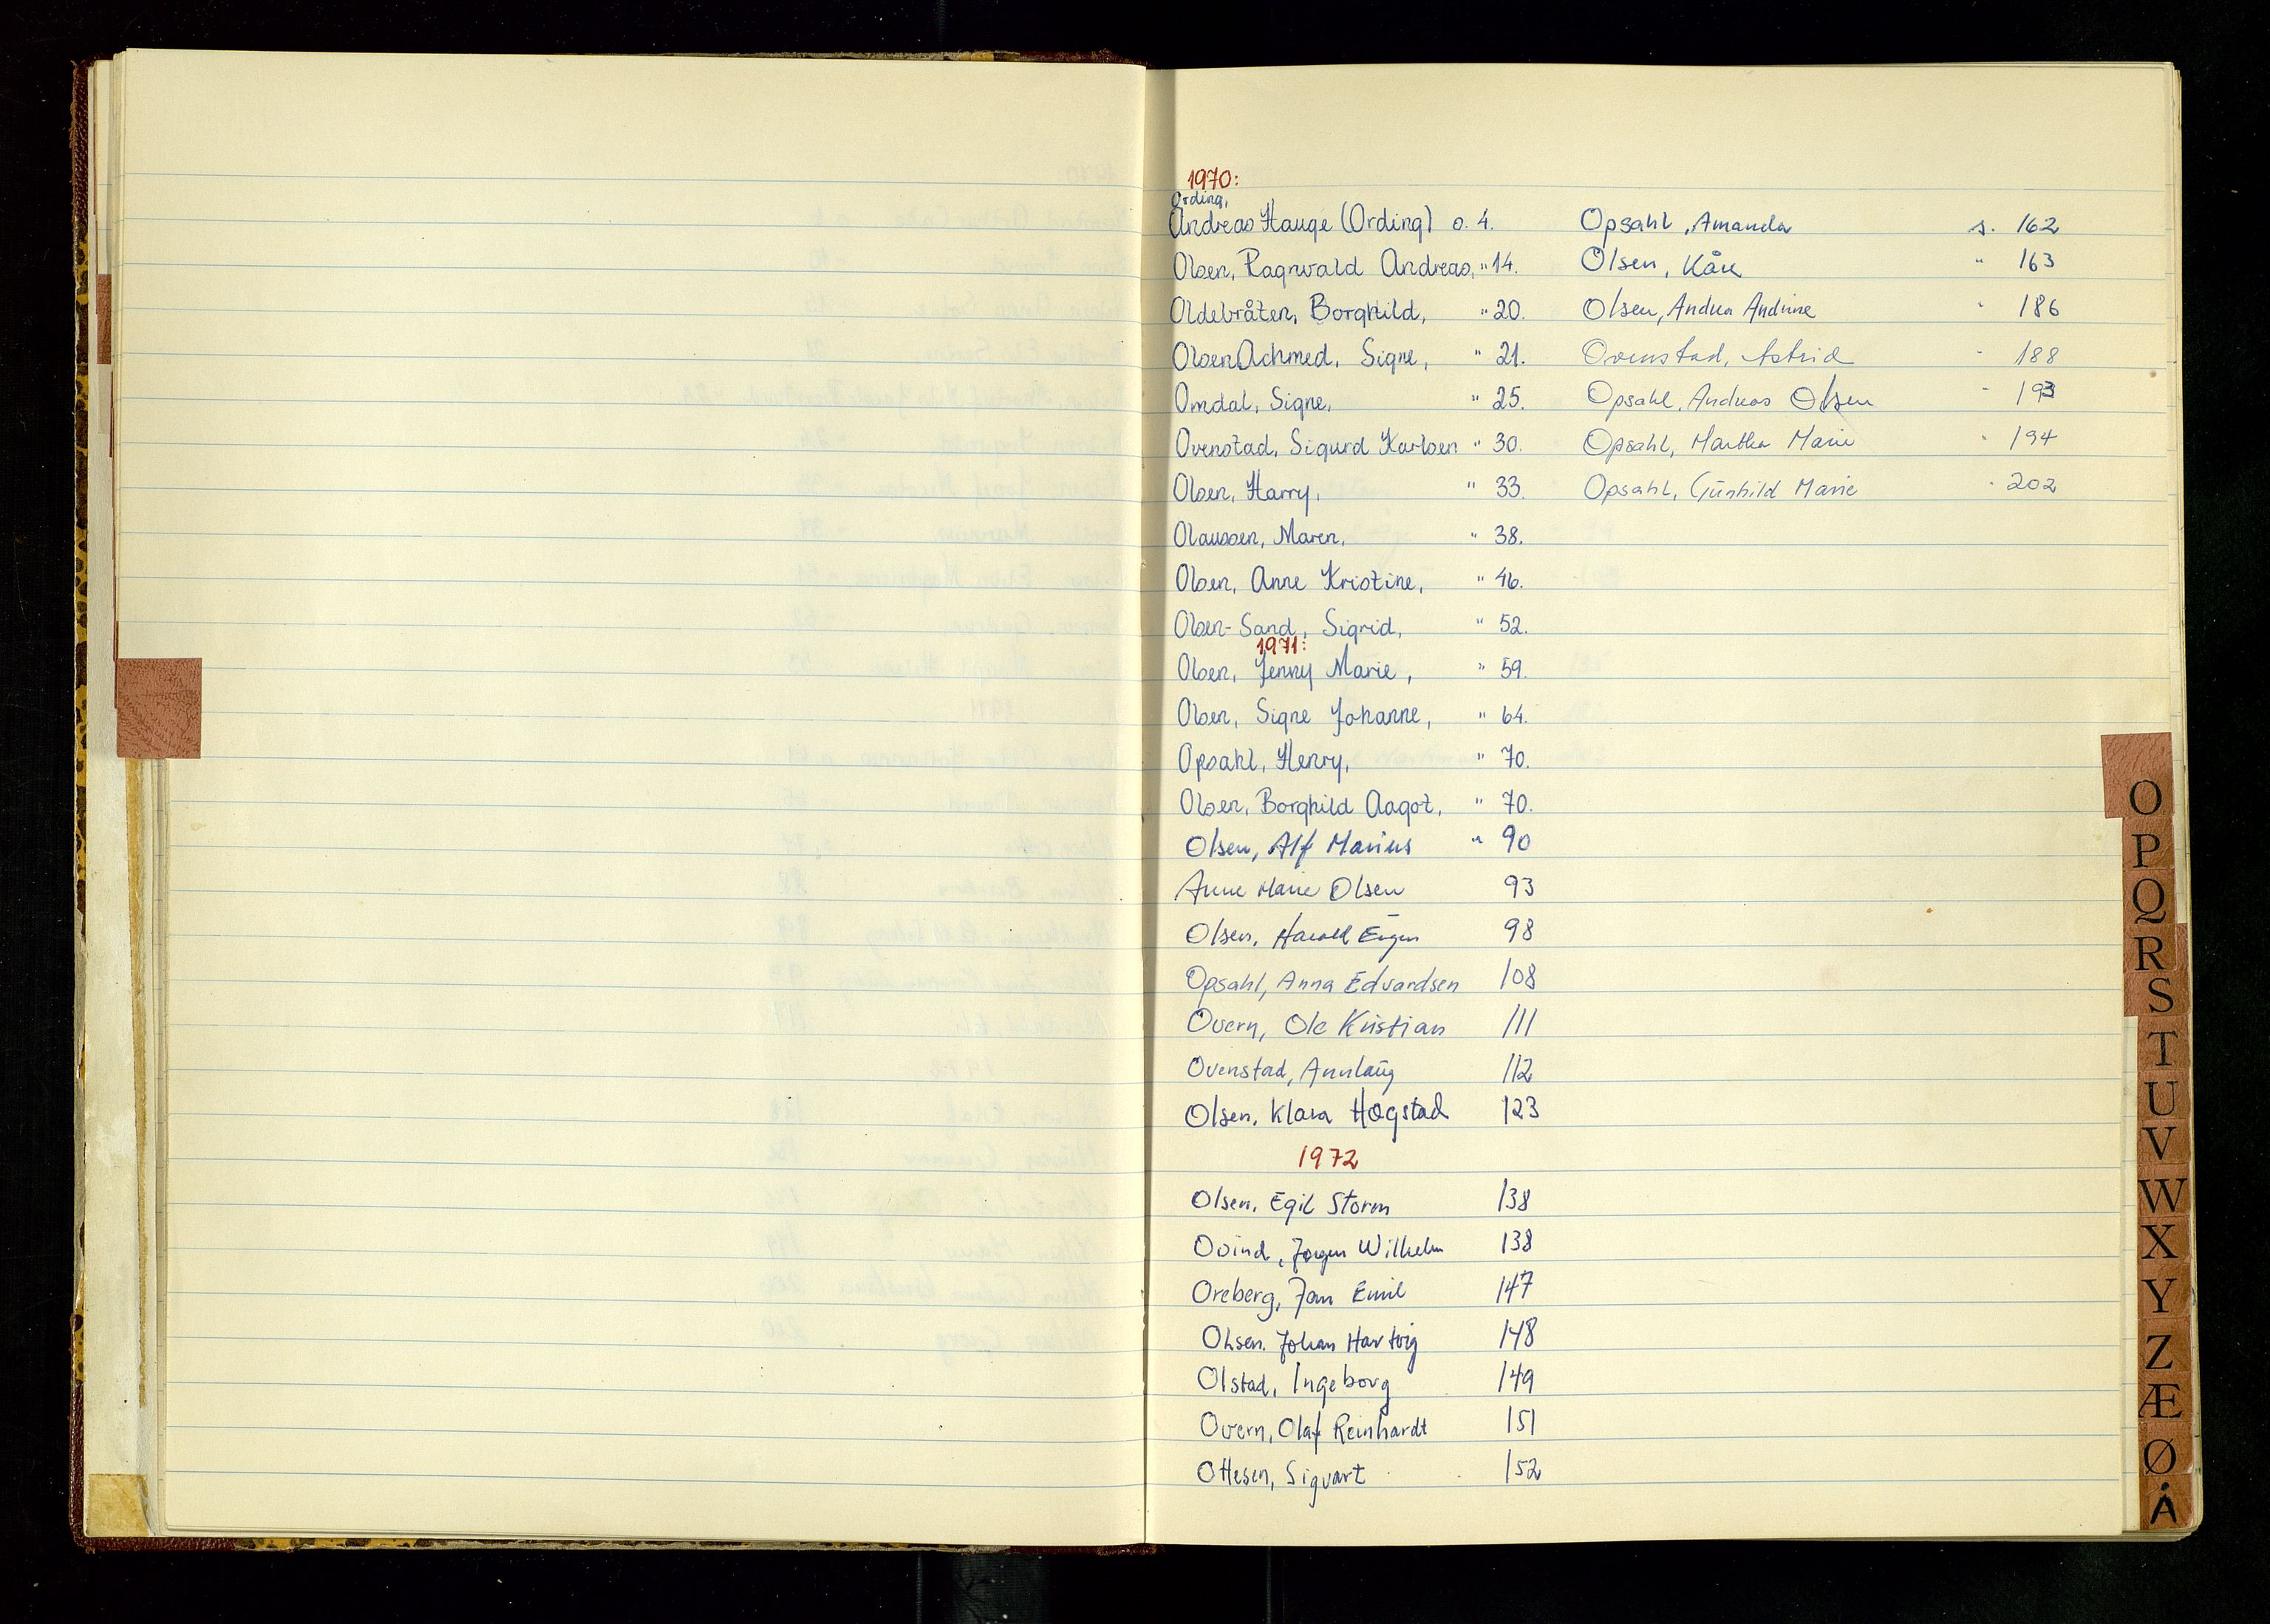 1970:
Ording,
Andreas Hauge (Ording) s. 4.
Olsen, Ragnvald Andreas, " 14.
Oldebråten, Borghild, " 20.
Olsen Achmed, Signe, " 21.
Omdal, Signe, " 25.
Ovenstad, Sigurd Karlsen " 30.
Olsen, Harry, " 33.
Olaussen, Maren, " 38.
Olsen, Anne Kristine, " 46.
Olsen-Sand, Sigrid, " 52.
1971:
Olsen, Jenny Marie, " 59.
Olsen, Signe Johanne, " 64.
Opsahl, Henry, " 70.
Olsen, Borghild Aagot, " 70.
Olsen, Alf Marius " 90
Anne Marie Olsen 93
Olsen, Harald Eugen 98
Opsahl, Anna Edvardsen 108
Overn, Ole Kristian 111
Ovenstad, Annlaug 112
Olsen, Klara Hogstad 123
1972
Olsen, Egil Storm 138
Ovind, Jørgen Wilhelm 138
Oreberg, Jan Emil 147
Olsen. Johan Hartvig 148
Olstad, Ingeborg 149
Overn, Olaf Reinhardt 151
Ottesen, Sigvart 152
Opsahl, Amanda s. 162
Olsen, Kåre " 163
Olsen, Andrea Andrine " 186
Ovenstad, Astrid " 188
Opsahl, Andreas Olsen " 193
Opsahl, Martha Marie " 194
Opsahl, Gunhild Marie " 202
O
P
Q
R
S
T
U
V
W
X
Y
Z
Æ
Ø
Å